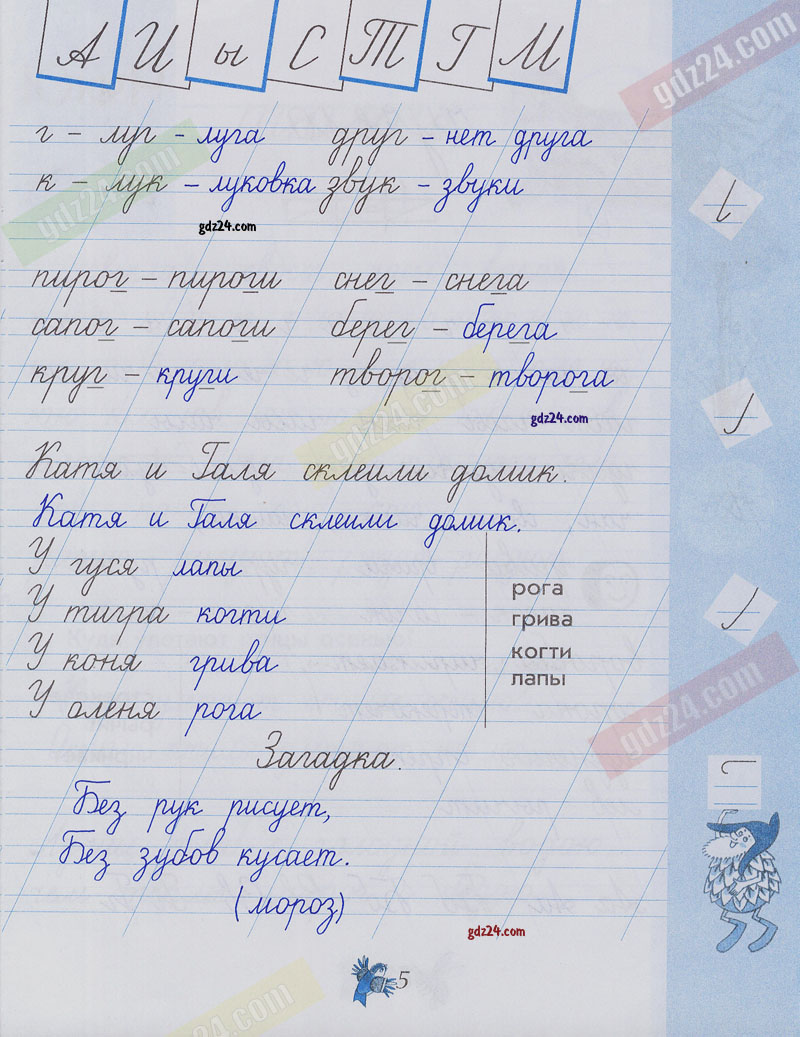 А И ы С Т Г М
gdz24.com
г – луг – луга друг – нет друга
к – лук – луковка звук – звуки
gdz24.com
gdz24.com
пирог – пироги снег – снега
сапог – сапоги берег – берега
круг – круги творог – творога
gdz24.com
gdz24.com
Катя и Галя склеили домик.
Катя и Галя склеили домик.
У гуся лапы
У тигра когти
У коня грива
У оленя рога
рога
грива
когти
лапы
gdz24.com
Загадка.
Без рук рисует,
Без зубов кусает.
(мороз)
gdz24.com
5
gdz24.com